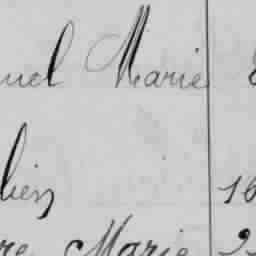 uel Marie
lien 16
re Marie 2